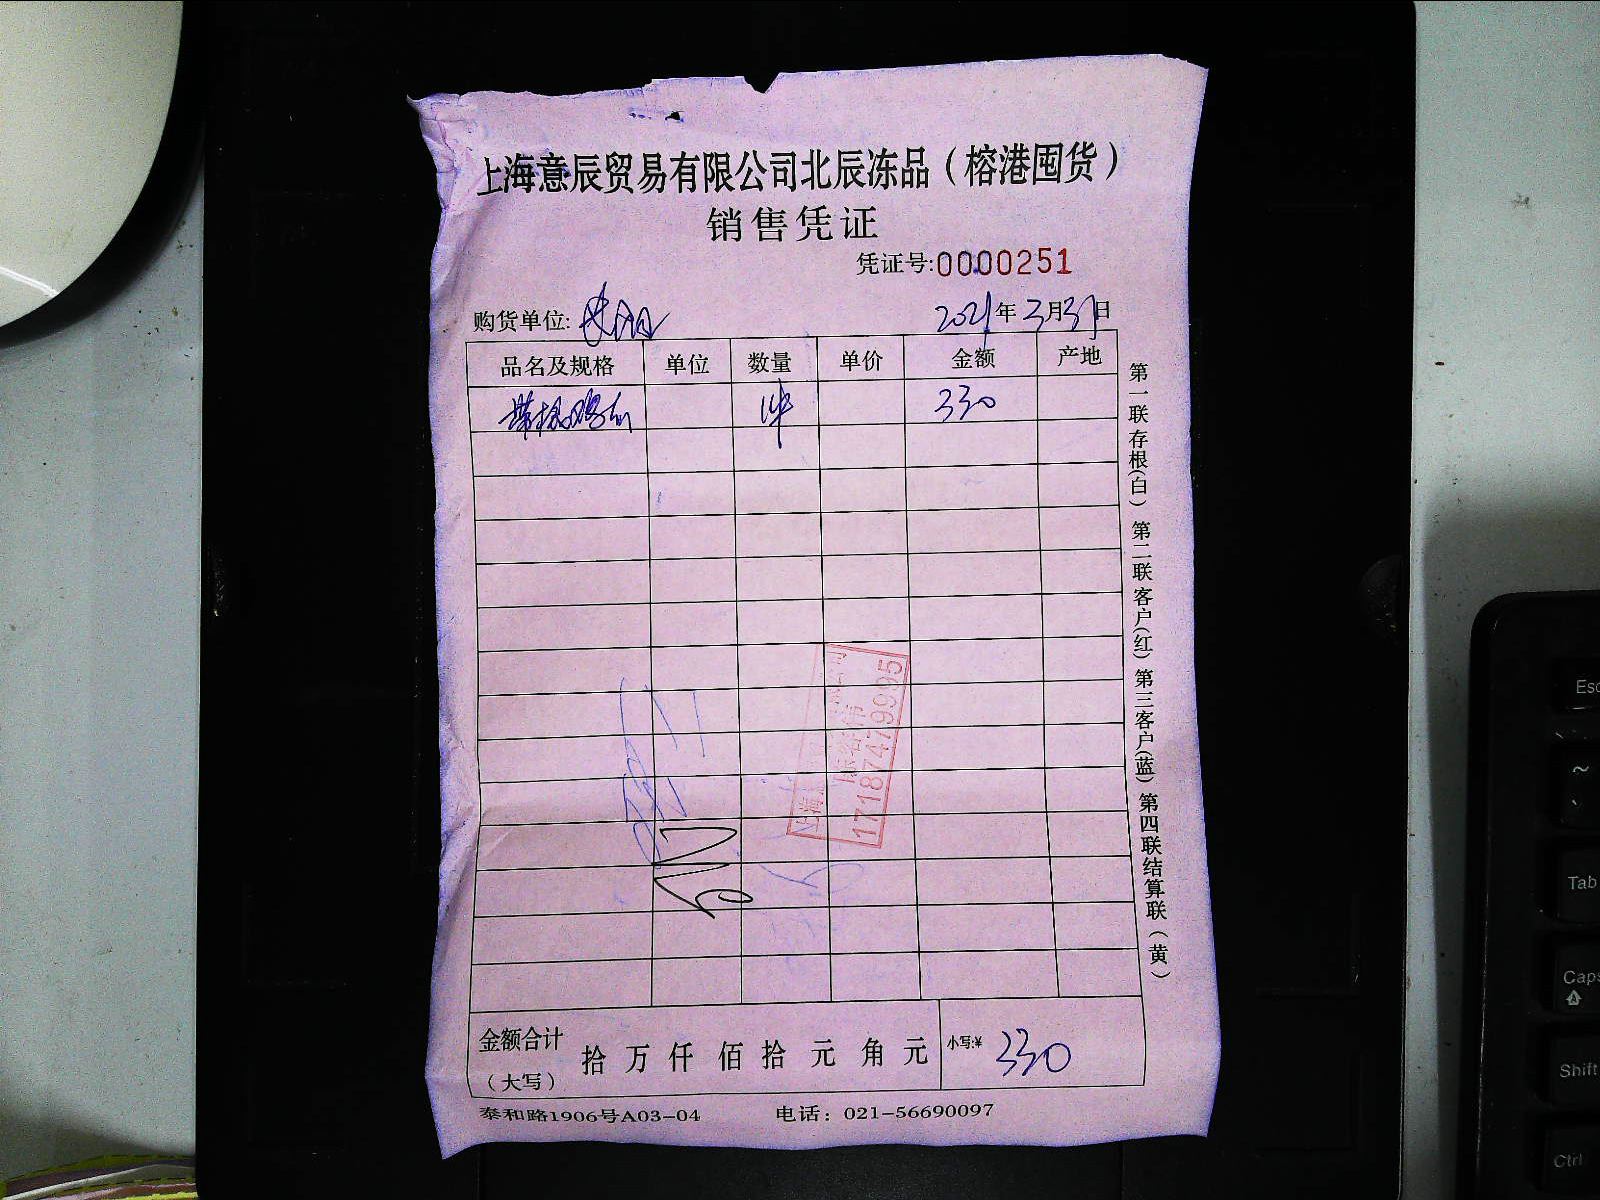 上海意辰贸易有限公司北辰冻品（榕港囤货）
销售凭证
凭证号:0000251
购货单位:
2021年3月31日
品名及规格 单位 数量 单价 金额 产地
1件 330
第一联存根(白) 第二联客户(红) 第三客户(蓝) 第四联结算联(黄)
上海
17187479995
金额合计（大写） 拾 万 仟 佰 拾 元 角 元 小写:¥ 330
泰和路1906号A03-04 电话：021-56690097
Esc
~
、
Tab
Caps
Shift
Ctrl